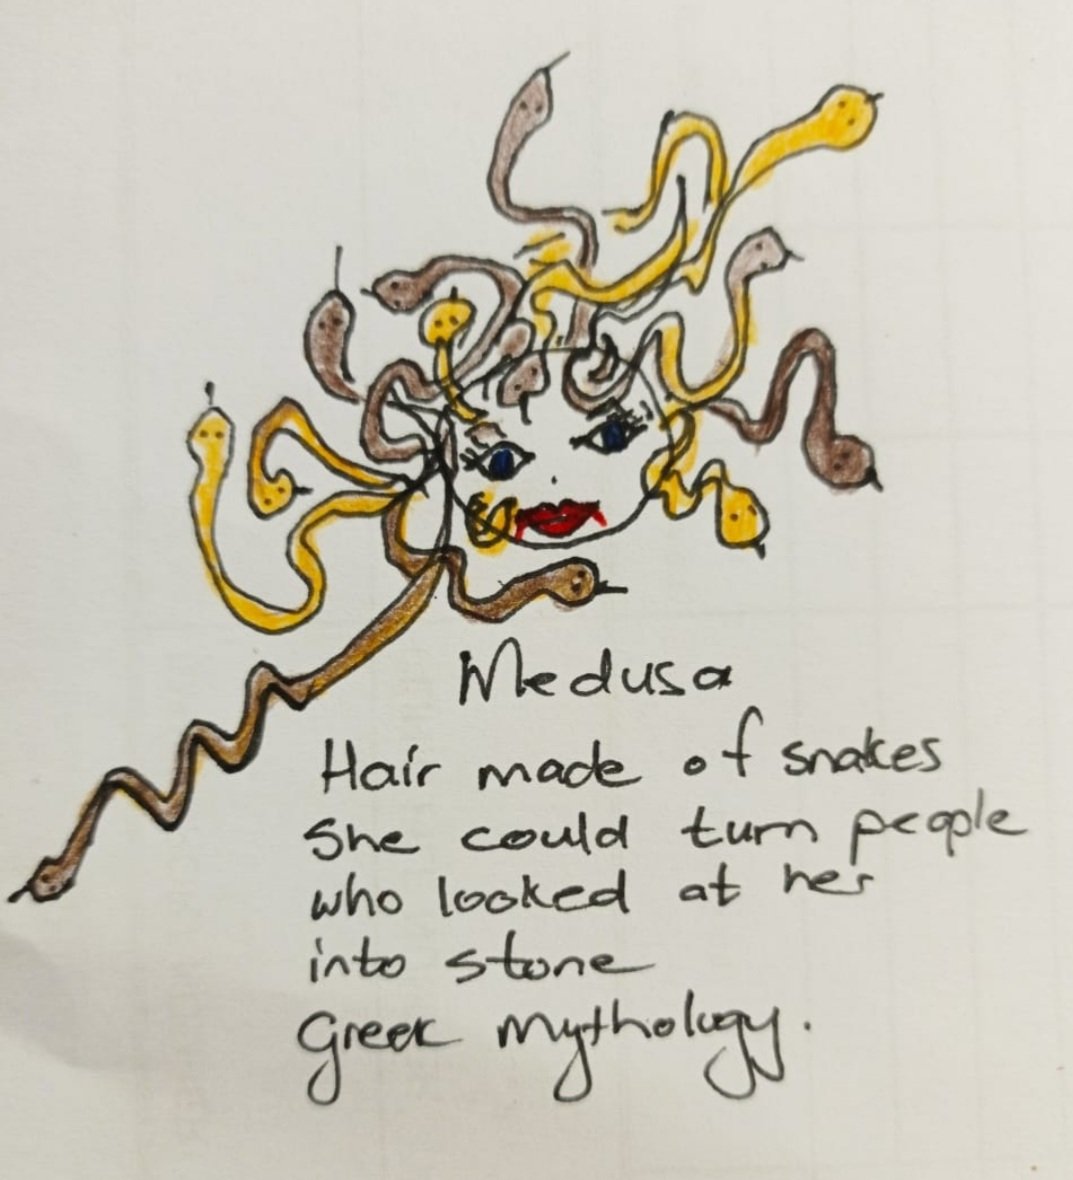 Medusa
Hair made of snakes
She could turn people
who looked at her
into stone
Greek mythology.